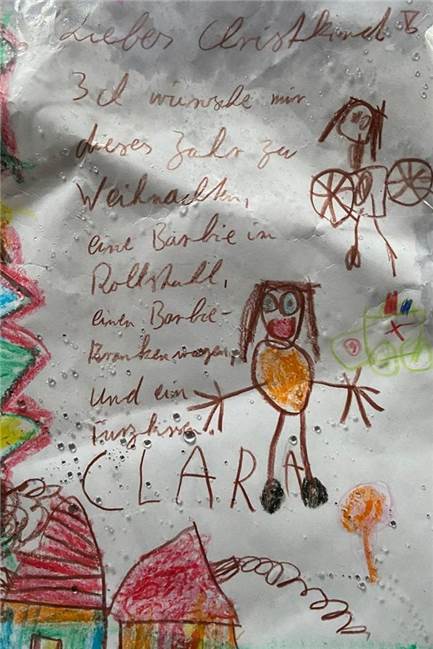 Liebes Christkind!
Ich wünsche mir
dieses Jahr zu
Weihnachten,
eine Barbie im
Rollstuhl,
einen Barbie-
Krankenwagen,
und ein
Furzkissen.
CLARA